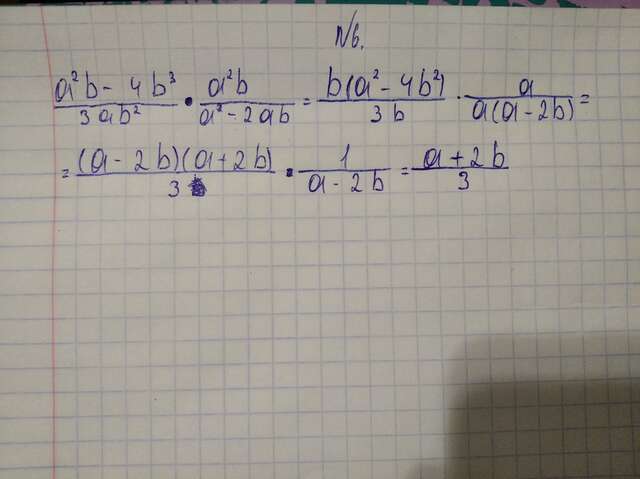 №6.
(a²b - 4b³)/(3ab²) • (a²b)/(a² - 2ab) = (b(a² - 4b²))/(3b) · a/(a(a - 2b)) =
= ((a - 2b)(a + 2b))/3 • 1/(a - 2b) = (a + 2b)/3